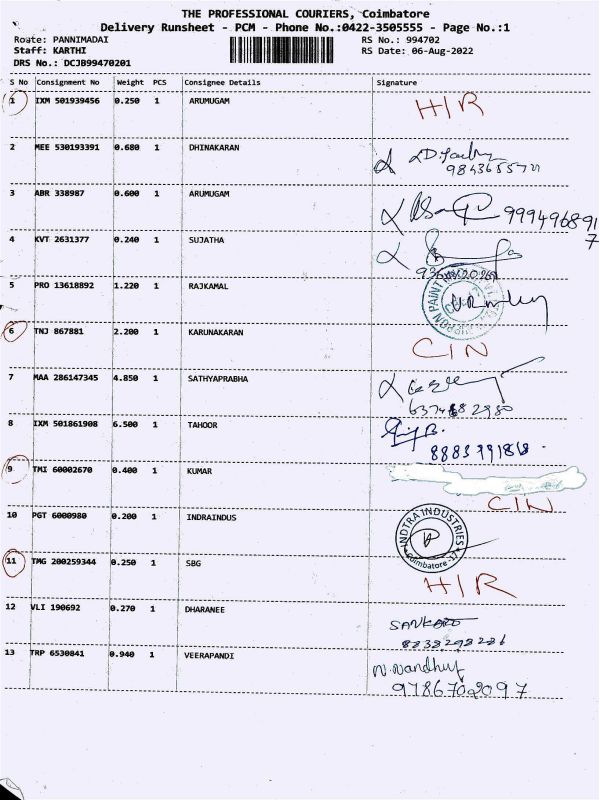 THE PROFESSIONAL COURIERS, Coimbatore
Delivery Runsheet - PCM - Phone No.:0422-3505555 - Page No.:1
Route: PANNIMADAI RS No.: 994702
Staff: KARTHI RS Date: 06-Aug-2022
DRS No.: DCJB99470201
S No Consignment No Weight PCS Consignee Details Signature
1 IXM 501939456 0.250 1 ARUMUGAM H/R
2 MEE 530193391 0.680 1 DHINAKARAN
3 ABR 338987 0.600 1 ARUMUGAM
9994968917
4 KVT 2631377 0.240 1 SUJATHA
5 PRO 13618892 1.220 1 RAJKAMAL
6 TNJ 867881 2.200 1 KARUNAKARAN C/N
7 MAA 286147345 4.850 1 SATHYAPRABHA
8 IXM 501861908 6.500 1 TAHOOR
9 TMI 60002670 0.400 1 KUMAR
C/N
10 PGT 6000980 0.200 1 INDRAINDUS
INDTRA INDUSTRIES
Coimbatore-17
11 TMG 200259344 0.250 1 SBG
H/R
12 VLI 190692 0.270 1 DHARANEE
8838298286
13 TRP 6530841 0.940 1 VEERAPANDI
N.Nandhu
9786702097